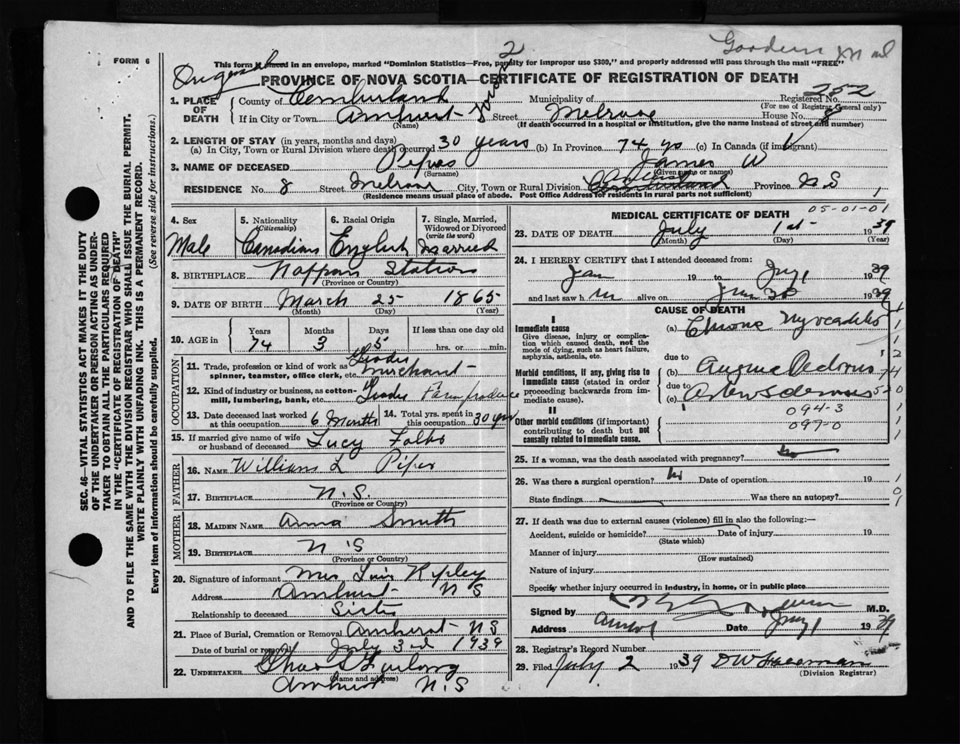 FORM 6
This form in an envelope, marked "Dominion Statistics—Free, penalty for improper use $300," and properly addressed will pass through the mail "FREE"
PROVINCE OF NOVA SCOTIA—CERTIFICATE OF REGISTRATION OF DEATH
SEC. 46—VITAL STATISTICS ACT MAKES IT THE DUTY
OF THE UNDERTAKER OR PERSON ACTING AS UNDER-
TAKER TO OBTAIN ALL THE PARTICULARS REQUIRED
IN THE "CERTIFICATE OF REGISTRATION OF DEATH"
AND TO FILE THE SAME WITH THE DIVISION REGISTRAR WHO SHALL ISSUE THE BURIAL PERMIT.
WRITE PLAINLY WITH UNFADING INK. THIS IS A PERMANENT RECORD.
Every item of information should be carefully supplied. (See reverse side for instructions.)
1. PLACE OF DEATH County of Cumberland Municipality of Registered No. 252
(For use of Registrar General only)
If in City or Town Amherst Street Melrose House No. 8
(Name) (If death occurred in a hospital or institution, give the name instead of street and number)
2. LENGTH OF STAY (in years, months and days)
(a) In City, Town or Rural Division where death occurred 30 years (b) In Province 74 yrs (c) In Canada (if immigrant)
3. NAME OF DECEASED Piper James W
(Surname) (Given name or names)
RESIDENCE No. 8 Street Melrose City, Town or Rural Division Province N.S
(Residence means usual place of abode. Post Office Address for residents in rural parts not sufficient)
4. Sex Male
5. Nationality (Citizenship) Canadian
6. Racial Origin English
7. Single, Married, Widowed or Divorced (write the word) Married
8. BIRTHPLACE Nappan Station
(Province or Country)
9. DATE OF BIRTH March 25 1865
(Month) (Day) (Year)
10. AGE in Years 74 Months 3 Days 5 If less than one day old
hrs. or min.
OCCUPATION
11. Trade, profession or kind of work as spinner, teamster, office clerk, etc. Merchant
12. Kind of industry or business, as cotton-mill, lumbering, bank, etc. Farm produce
13. Date deceased last worked at this occupation 6 Months 14. Total yrs. spent in this occupation 30 yrs
15. If married give name of wife or husband of deceased Lucy
FATHER
16. NAME William L Piper
17. BIRTHPLACE N.S.
(Province or Country)
MOTHER
18. MAIDEN NAME Anna Smith
19. BIRTHPLACE N S
(Province or Country)
20. Signature of informant Mrs Ripley
Address Amherst N S
Relationship to deceased Sister
21. Place of Burial, Cremation or Removal Amherst N S
Date of burial or removal July 3rd 1939
22. UNDERTAKER Chas S Furlong
(Name and address)
Amherst N.S
MEDICAL CERTIFICATE OF DEATH
05-01-01
23. DATE OF DEATH July 1st 1939
(Month) (Day) (Year)
24. I HEREBY CERTIFY that I attended deceased from:
Jan 19 to July 1 1939
and last saw him alive on June 30 1939
CAUSE OF DEATH
I
Immediate cause
Give disease, injury or complication which caused death, not the mode of dying, such as heart failure, asphyxia, asthenia, etc.
(a) Chronic Myocarditis
due to
Morbid conditions, if any, giving rise to immediate cause (stated in order proceeding backwards from immediate cause).
(b) Angina Pectoris
due to
(c)
II
Other morbid conditions (if important) contributing to death but not causally related to immediate cause.
094-3
097-0
25. If a woman, was the death associated with pregnancy? no
26. Was there a surgical operation? No Date of operation 19
State findings Was there an autopsy?
27. If death was due to external causes (violence) fill in also the following:—
Accident, suicide or homicide? Date of injury 19
(State which)
Manner of injury
(How sustained)
Nature of injury
Specify whether injury occurred in industry, in home, or in public place
Signed by M.D.
Address Amherst Date July 1 1939
28. Registrar's Record Number
29. Filed July 2 1939 D W Freeman
(Division Registrar)